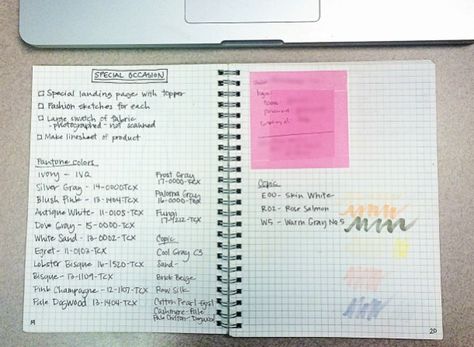 SPECIAL OCCASION
Special landing page with topper
Fashion sketches for each
Large swatch of fabric
- photographed - not scanned
Make linesheet of product
Pantone colors
Ivory - IVQ
Silver Gray - 14-0000TCX
Blush Pink - 13-1404TCX
Antique White - 11-0105-TCX
Dove Gray - 15-0000-TCX
White Sand - 13-0002-TCX
Egret - 11-0103-TCX
Lobster Bisque - 16-1520-TCX
Bisque - 13-1109-TCX
Pink Champagne - 12-1107-TCX
Pale Dogwood 13-1404-TCX
Frost Gray
17-0000-TCX
Paloma Gray
16-0000-TCX
Fungi
Copic
Cool Gray C3
Sand -
Brick Beige
Raw Silk
Cotton Pearl
Cashmere - Pale
Pale Chiffon - Dogwood
19
Copic
E00 - Skin White
R02 - Rose Salmon
W5 - Warm Gray No 5
20